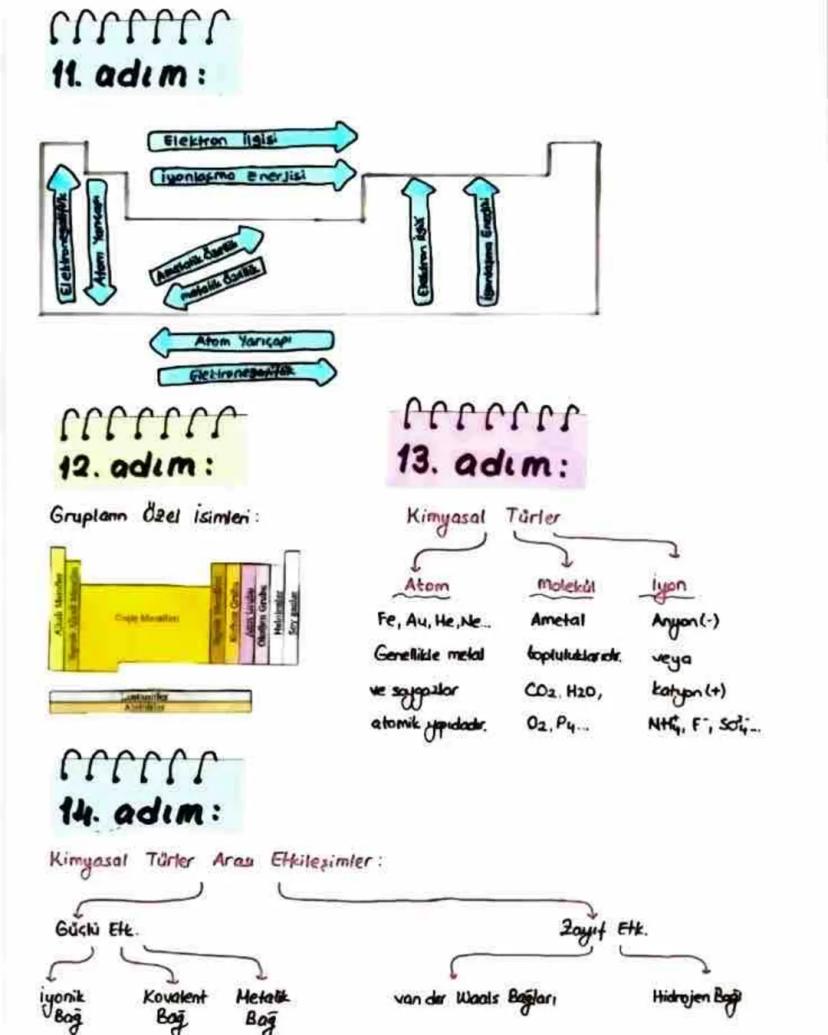 11. adım:
Elektron İlgisi
İyonlaşma Enerjisi
Elektronegatiflik
Atom Yarıçapı
Ametalik Özellik
metalik Özellik
Elektron ilgisi
İyonlaşma Enerjisi
Atom Yarıçapı
Elektronegatiflik
12. adım:
Grupların Özel isimleri:
Alkali Metaller
Toprak Alkali Metalleri
Geçiş Metalleri
Toprak Metalleri
Karbon Grubu
Azot Grubu
Oksijen Grubu
Halojenler
Soy gazlar
Lantanitler
Aktinitler
13. adım:
Kimyasal Türler
Atom
Fe, Au, He, Ne...
Genellikle metal
ve soygazlar
atomik yapıdadır.
Molekül
Ametal
topluluklarıdır.
CO2, H2O,
O2, P4...
İyon
Anyon(-)
veya
katyon(+)
NH4⁺, F⁻, SO4²⁻...
14. adım:
Kimyasal Türler Arası Etkileşimler:
Güçlü Etk.
Zayıf Etk.
İyonik Bağ
Kovalent Bağ
Metalik Bağ
van der Waals Bağları
Hidrojen Bağı